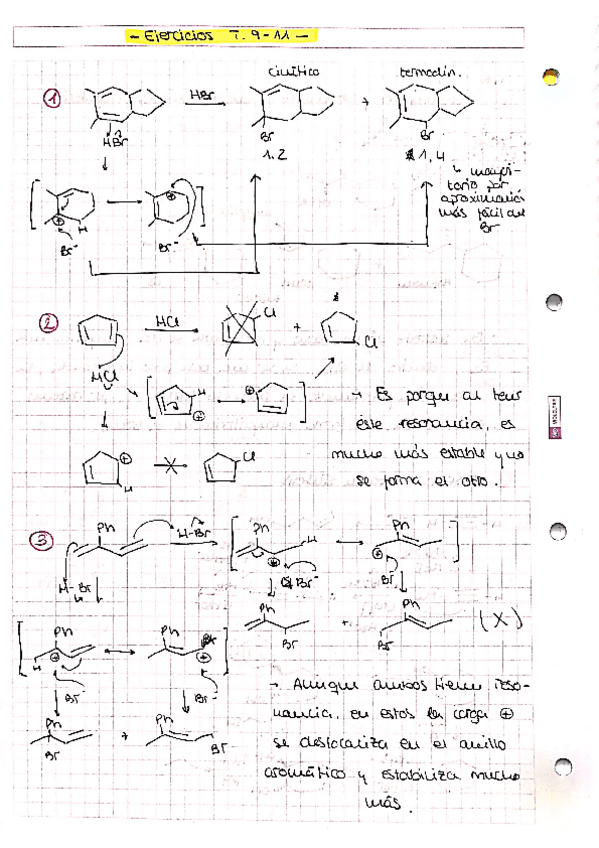 - Ejercicios T. 9-11 -
cinético
termodin.
① HBr +
Br
Br
HBr
1.2
1,4
↳ mayori-
tario por
aproximación
más fácil del
Br
⊕ H ⊕
Br⁻ Br⁻
② HCl Cl + Cl
HCl
H ⊕ ⊕
→ Es porque al tener
éste resonancia, es
mucho más estable y no
se forma el otro.
⊕ H Cl
③ Ph H-Br Ph H ⊕ Ph ⊕
H-Br Br⁻ Br⁻
Ph Br + Ph Br (X)
Ph H ⊕ Ph ⊕
Br⁻ Br⁻
Ph Br + Ph Br
→ Aunque ambos tienen reso-
nancia, en estos la carga ⊕
se deslocaliza en el anillo
aromático y estabiliza mucho
más.